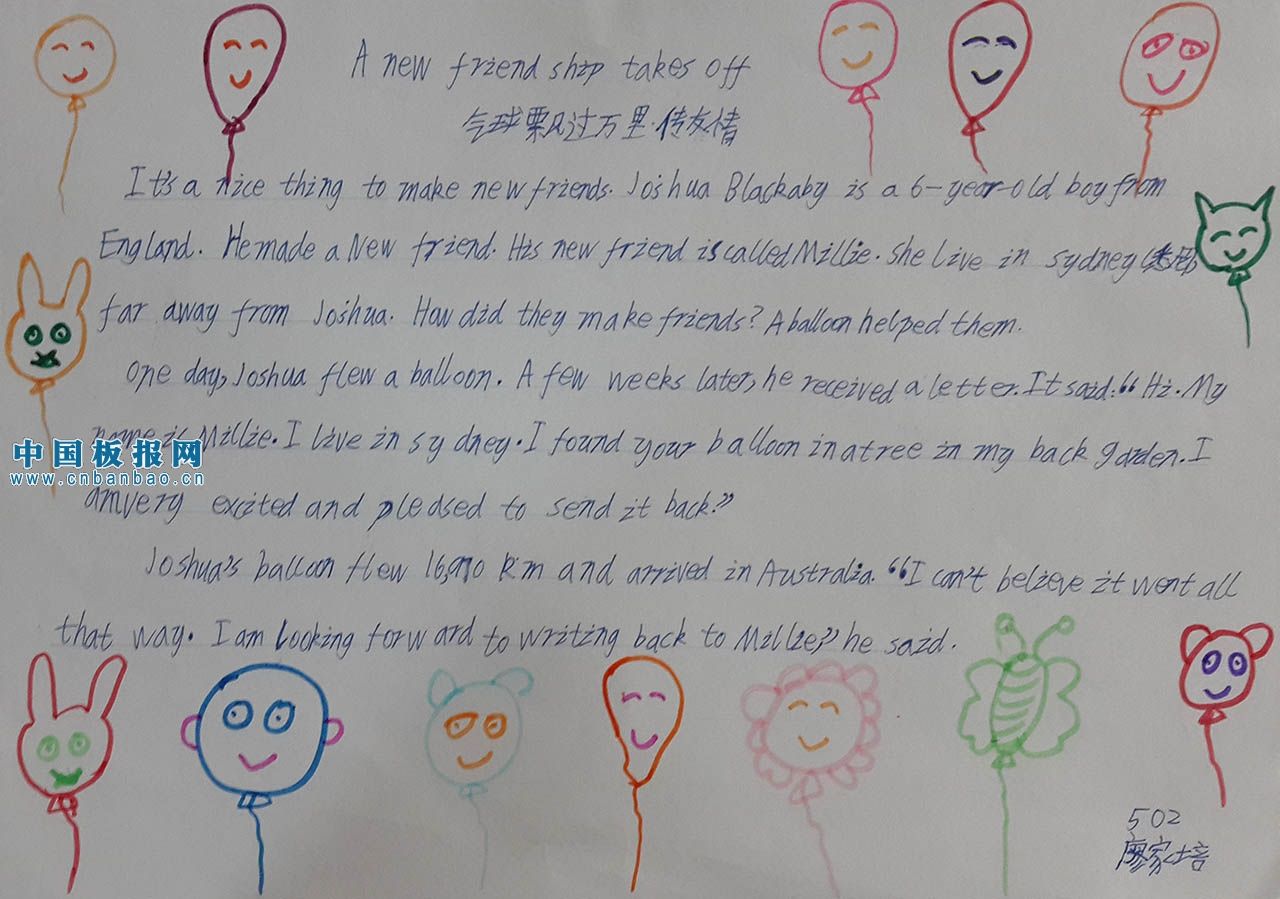 A new friend ship takes off
气球飘过万里·传友情
It's a nice thing to make new friends. Joshua Blackaby is a 6-year-old boy from
England. He made a New friend. His new friend is called Millie. she live in sydney (悉尼)
far away from Joshua. How did they make friends? A balloon helped them.
One day, Joshua flew a balloon. A few weeks later, he received a letter. It said: “Hi. My
name is Millie. I live in sydney. I found your balloon in a tree in my back garden. I
am very excited and pleased to send it back.”
Joshua's balloon flew km and arrived in Australia. “I can't believe it went all
that way. I am looking forward to writing back to Millie,” he said.
中国板报网
www.cnbanbao.cn
502
廖家培